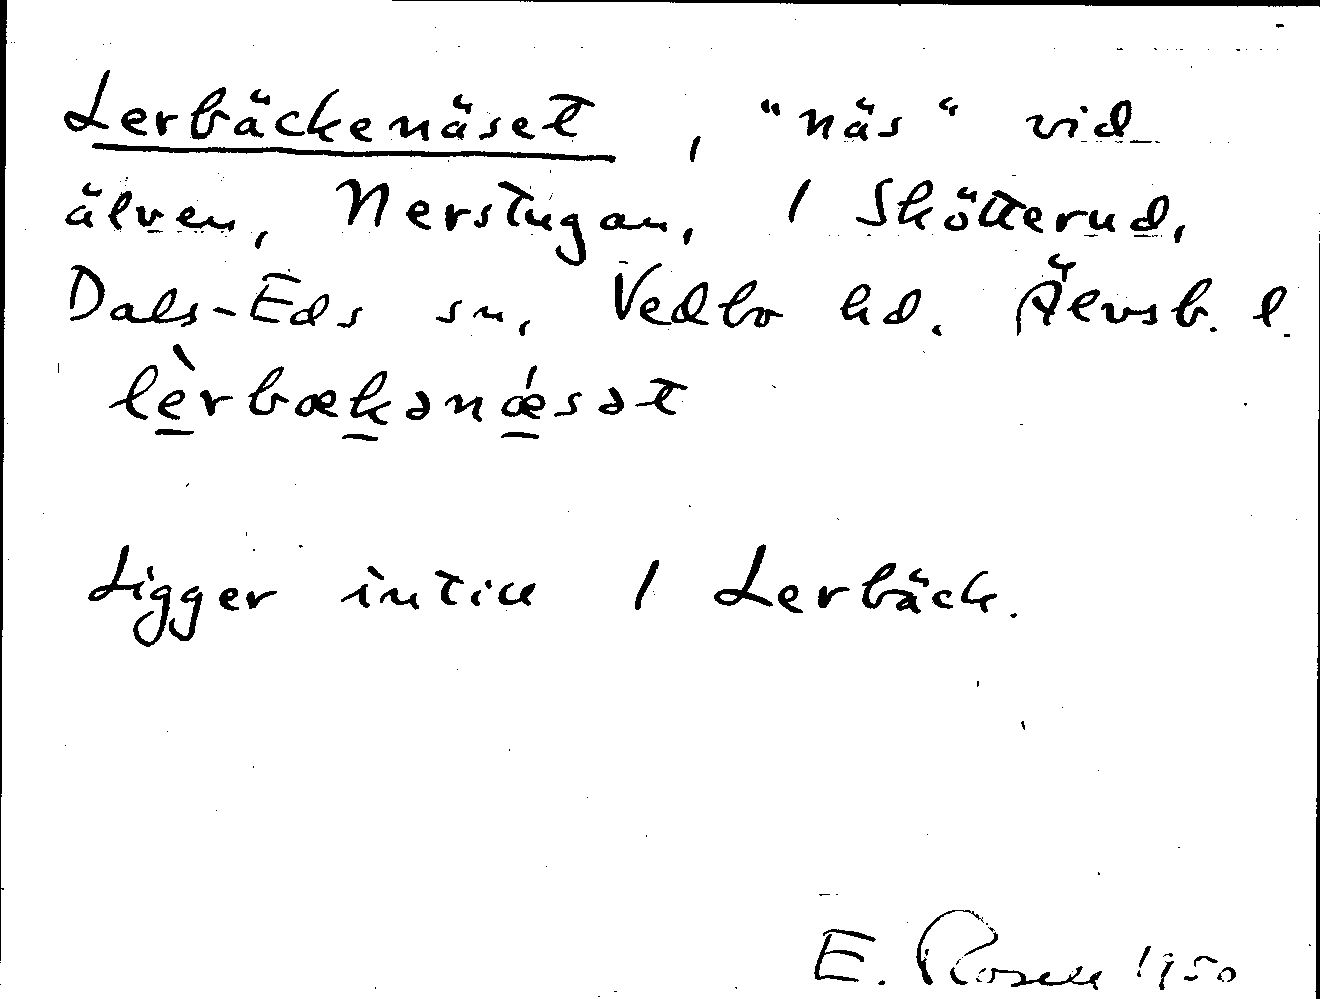 Lerbäckenäset, "näs" vid
älven, Nerstugan, / Skötterud,
Dals-Eds sn, Vedbo hd. Älvsb. l.
lèrbækənǽsət
Ligger intill / Lerbäck.
E. Rosell 1950